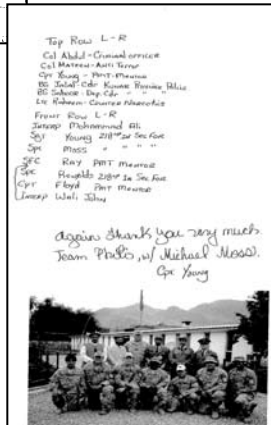 Top Row L-R
Col Abdul - Criminal officer
Col Mateen - Anti Terror
Cpt Young - PMT-Mentor
BG Jalal - Cdr Kunar Province Police
BG Sahoor - Dep. Cdr " " "
Ltc Raheem - Counter Narcotics
Front Row L-R
Interp Mohammad Ali
Sgt Young 218th In Sec Force
Spc Moss " " " "
SFC RAY PMT Mentor
Spc Reynolds 218th In Sec Force
Cpt Floyd PMT Mentor
Interp Wali John
Again thank you very much.
Team Photo, w/ Michael Moss.
Cpt Young